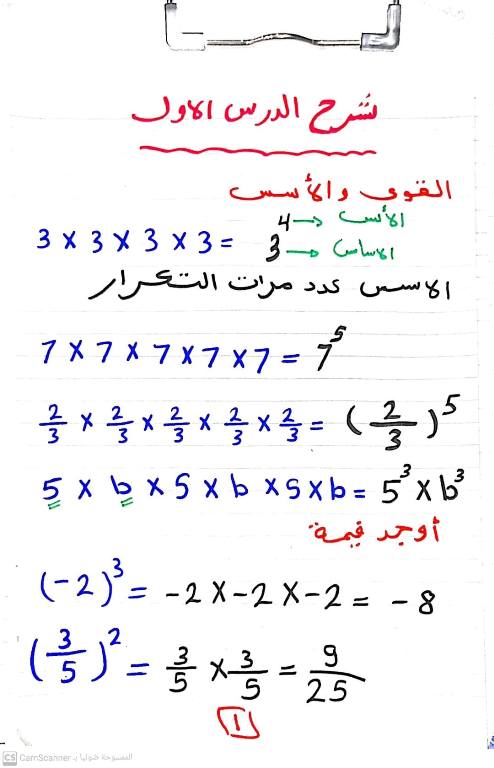 شرح الدرس الاول
القوى والأسس
3 × 3 × 3 × 3 = 3⁴
الأس
الاساس
الاسس عدد مرات التكرار
7 × 7 × 7 × 7 × 7 = 7⁵
2/3 × 2/3 × 2/3 × 2/3 × 2/3 = (2/3)⁵
5 × b × 5 × b × 5 × b = 5³ × b³
أوجد قيمة
(-2)³ = -2 × -2 × -2 = -8
(3/5)² = 3/5 × 3/5 = 9/25
1
CS CamScanner الممسوحة ضوئيا بـ